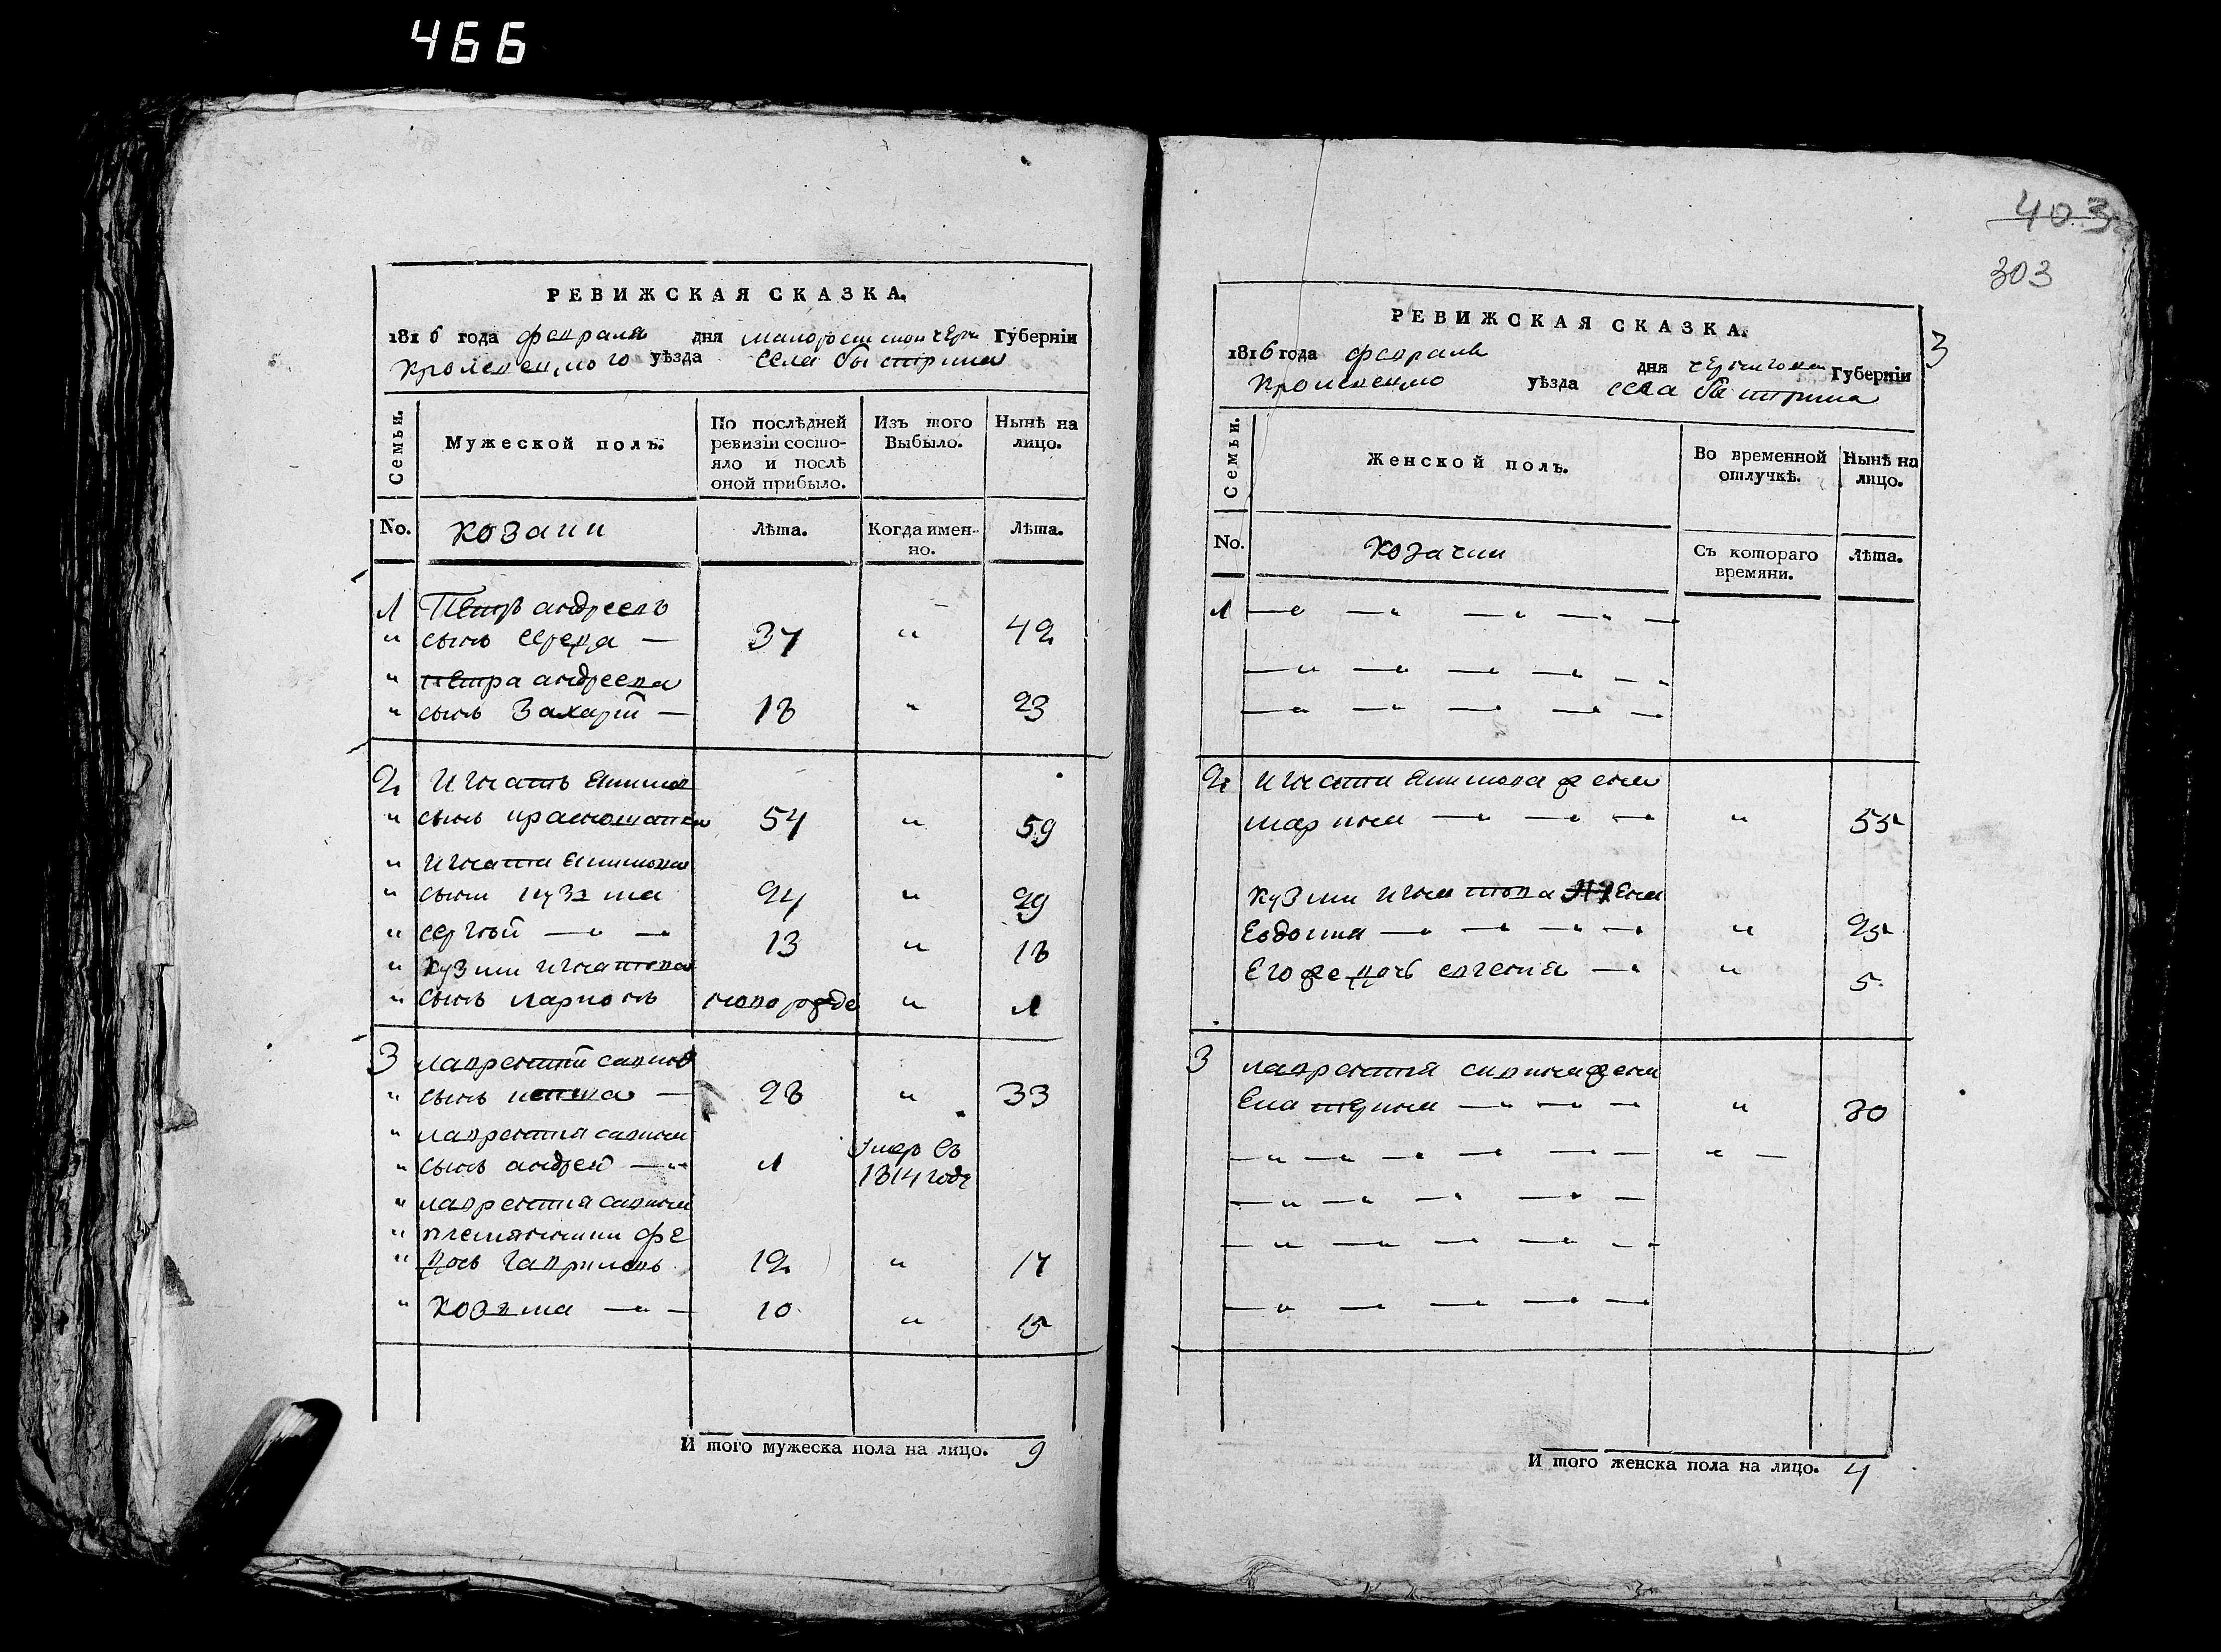 466
РЕВИЖСКАЯ СКАЗКА.
1816 года февраля дня малоросийской черн Губернїи
кролевецкого уѣзда села быстрика
Семьи.
Мужеской полъ.
По послѣдней ревизїи состо-
яло и послѣ оной прибыло.
Изъ того Выбыло.
Нынѣ на лицо.
No.
козаки
Лѣта.
Когда имен-
но.
Лѣта.
1 Петръ андреевъ
" сынъ середа — 37 " 42
" петра андреева
" сынъ Захарїй — 18 " 23
2 Игнатъ Якимов
" сынъ 54 " 59
" игната Якимова
" сыни кузма 24 " 29
" сергѣй — " — 13 " 18
" кузми игнатова
" сынъ ларионъ новорожде " 1
3 лаврентий савинъ
" сынъ 28 " 33
" лаврентия савина
" сынъ андрей — " 1 умер въ
1814 годе
" лаврентия савина
" племянники фе
" доръ гавриловъ 12 " 17
" козъма — " — 10 " 15
И того мужеска пола на лицо. 9
403
303
3
РЕВИЖСКАЯ СКАЗКА.
1816 года февраля дня черниговской Губернїи
кролевецкого уѣзда села быстрика
Семьи.
Женской полъ.
Во временной отлучкѣ.
Нынѣ на лицо.
No.
козачки
Съ котораго
времяни.
Лѣта.
1 — " — " — " — " —
— " — " — " — " — "
— " — " — " — " —
2 игната Якимова жена
марина — " — " — " 55
кузми игнатова жена
Евдокия — " — " — " — " 25
Его же дочь евгения — " " 5
3 лаврентия савина жена
Екатерина — " — " — " 30
— " — " — " — " — " — " —
— " — " — " — " —
— " — " — " — " — "
— " — " — " — " —
И того женска пола на лицо. 4